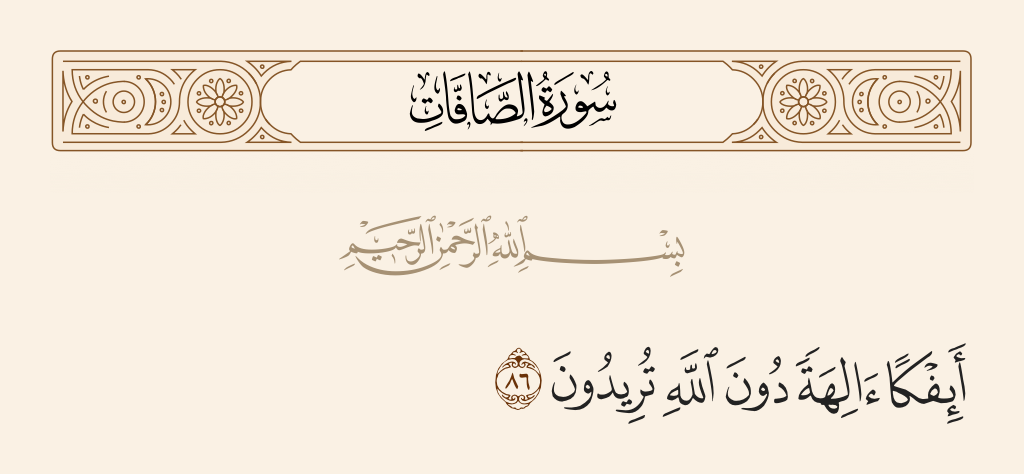 سُورَةُ الصَّافَّاتِ
بِسْمِ ٱللَّهِ ٱلرَّحْمَٰنِ ٱلرَّحِيمِ
أَئِفْكًا ءَالِهَةً دُونَ ٱللَّهِ تُرِيدُونَ ٨٦